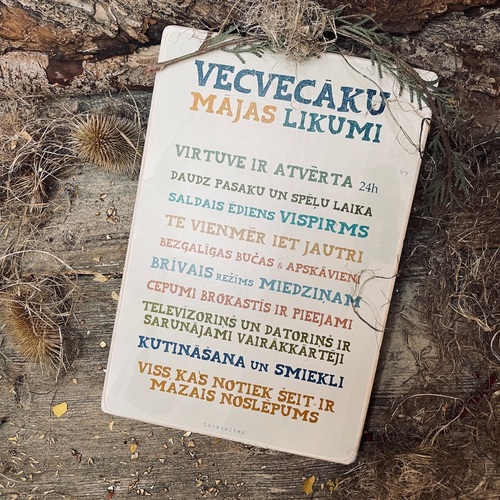 VECVECĀKU
MĀJAS LIKUMI
VIRTUVE IR ATVĒRTA 24h
DAUDZ PASAKU UN SPĒĻU LAIKA
SALDAIS ĒDIENS VISPIRMS
TE VIENMĒR IET JAUTRI
BEZGALĪGAS BUČAS & APSKĀVIENI
BRĪVAIS REŽĪMS MIEDZIŅAM
CEPUMI BROKASTĪS IR PIEEJAMI
TELEVĪZORIŅŠ UN DATORIŅŠ IR
SARUNĀJAMI VAIRĀKKĀRTĒJI
KUTINĀŠANA UN SMIEKLI
VISS KAS NOTIEK ŠEIT IR
MAZAIS NOSLĒPUMS